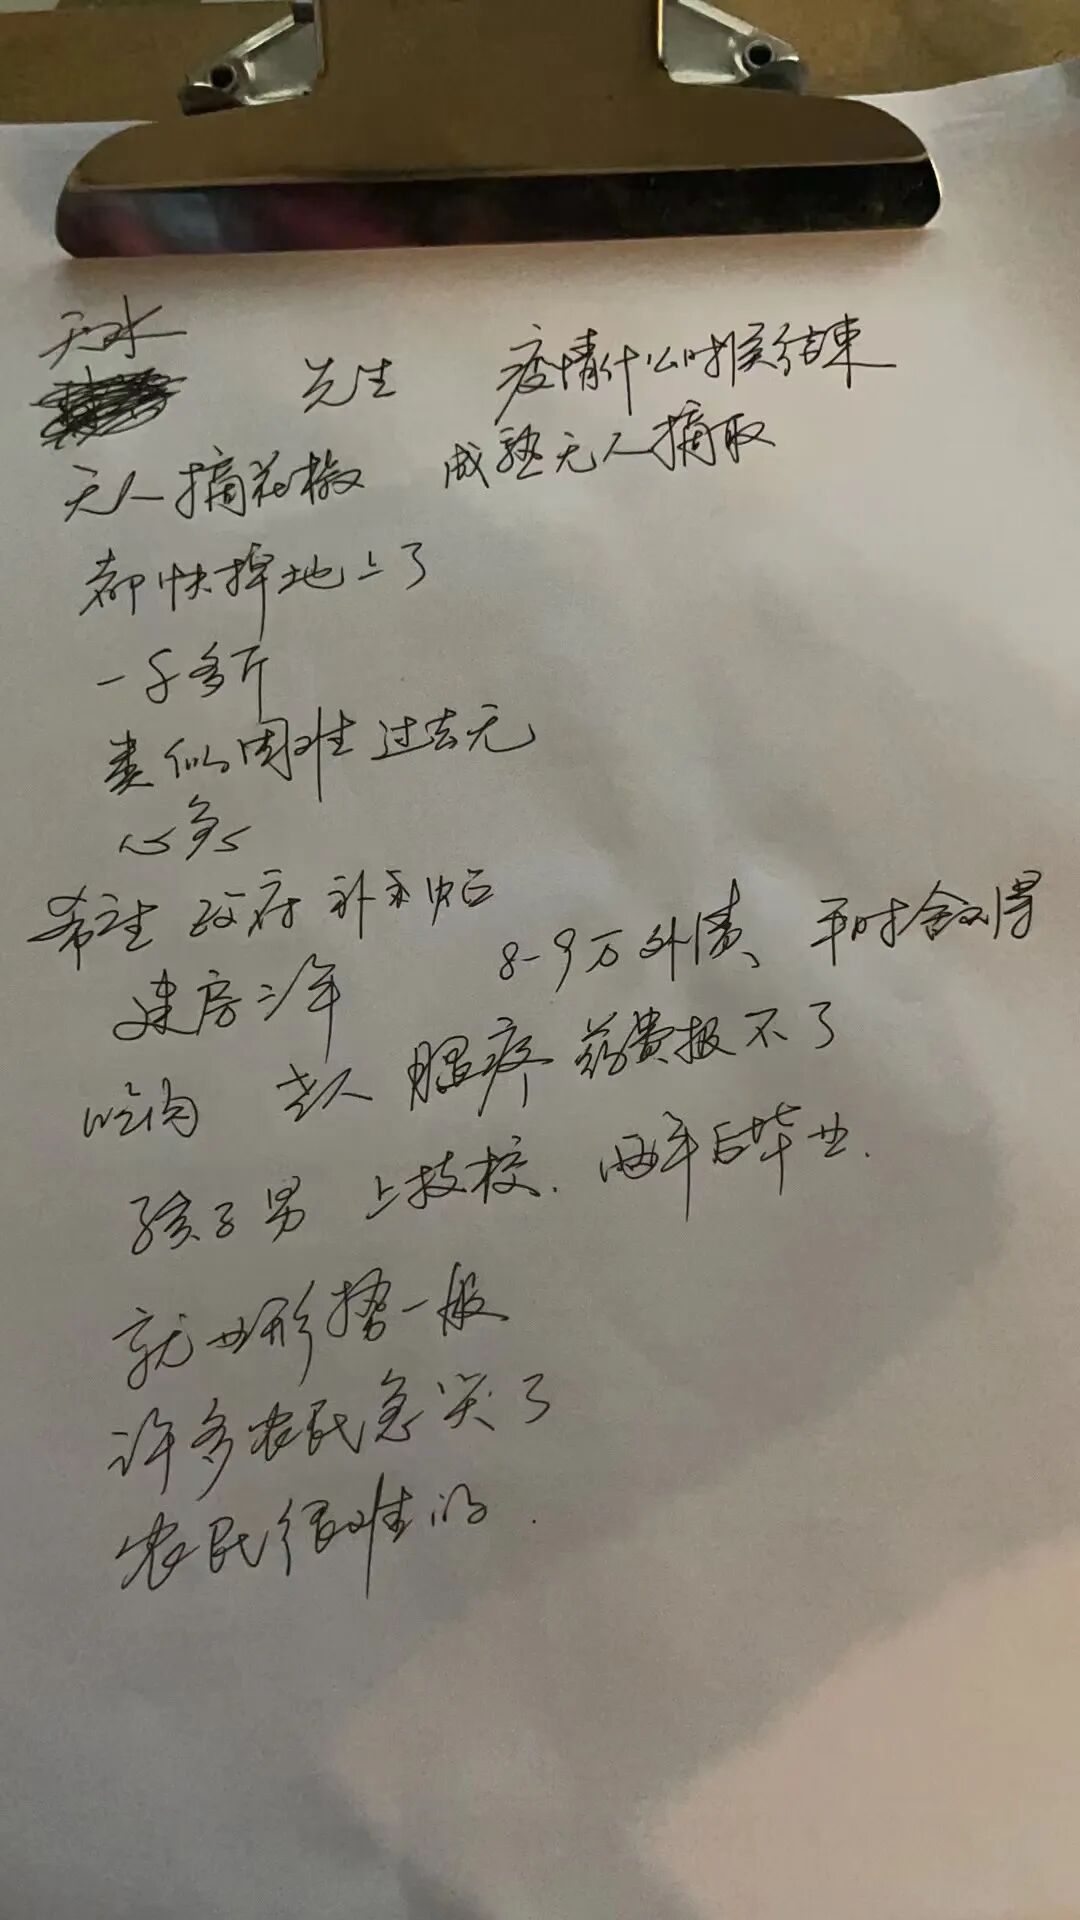 天水
先生 疫情什么时候结束
无人摘花椒 成熟无人摘取
都快掉地上了
一千多斤
类似困难过去无
心急
希望政府补贴
建房三年 8-9万外债、平时舍不得
吃肉 老人腿疼药费报不了
孩子男 上技校.两年后毕业.
就业形势一般
许多农民急哭了
农民很难的.